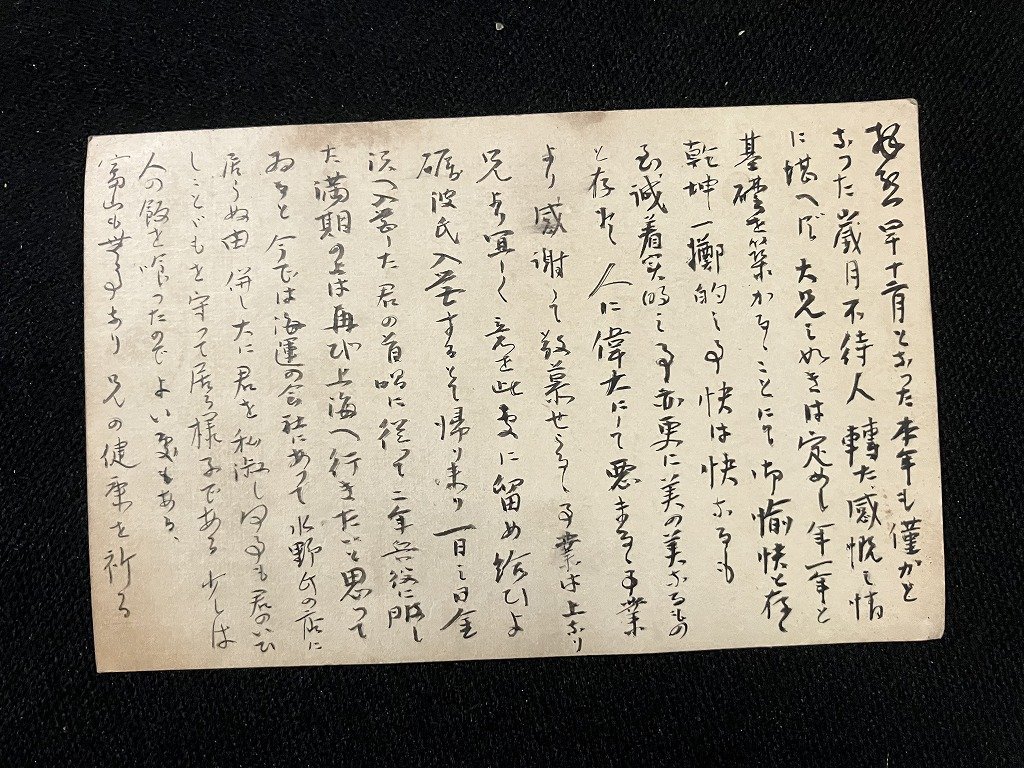 拝啓 早十二月となった 本年も僅かと
なつた 歳月不待人 轉た感慨之情
に堪へず 大兄之如きは定めし年一年と
基礎を築かるゝことにて御愉快と存じ
乾坤一擲的之事 快は快なるも
至誠着実的之事 亦更に美の美なるもの
と存候 人に偉大にて悪まるゝ事業
より感謝して敬慕せらるゝ事業は上なり
兄よ 宜しく意を此処に留め給ひよ
礪波氏入営するとて帰り来り 一日之日金
沢へ入営した 君の首唱に従って二年兵役に服し
た 満期の上は再び上海へ行きたいと思って
ゐると 今では海運の会社にあって水野氏の店に
居らぬ由 併し大に君を私淑し何事も君のいひ
しことどもを守って居る様子である 少しは
人の飯を喰ったのでよい処もある、
富山も無事なり 兄の健康を祈る